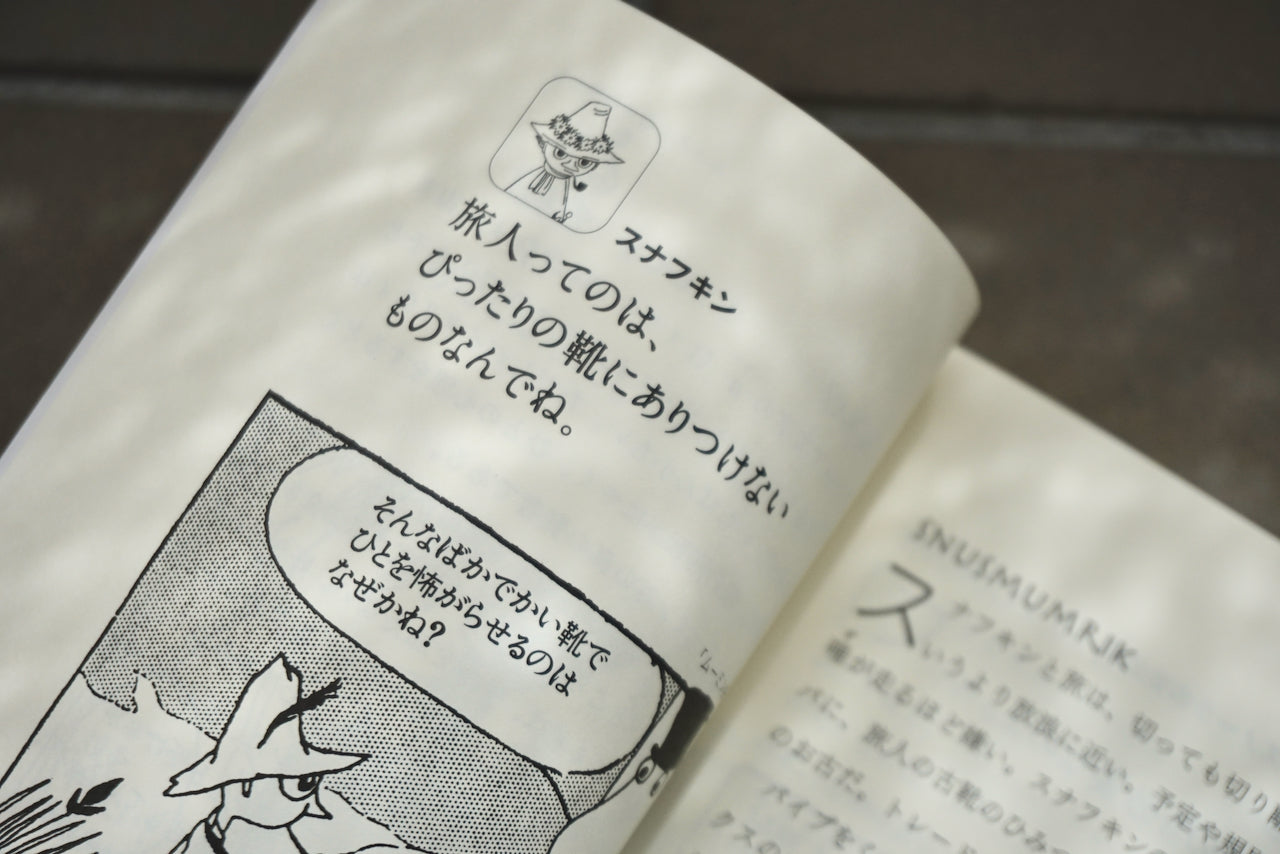 スナフキン
旅人ってのは、
ぴったりの靴にありつけない
ものなんでね。
そんなばかでかい靴で
ひとを怖がらせるのは
なぜかね?
「ムーミ
SNUSMUMRIK
スナフキンと旅は、切っても切り
いうより放浪に近い。予定や規
が走るほど嫌い。スナフキン
パに、旅人の古靴のひみつ
のお古だ。トレード
パイプをく
クスの